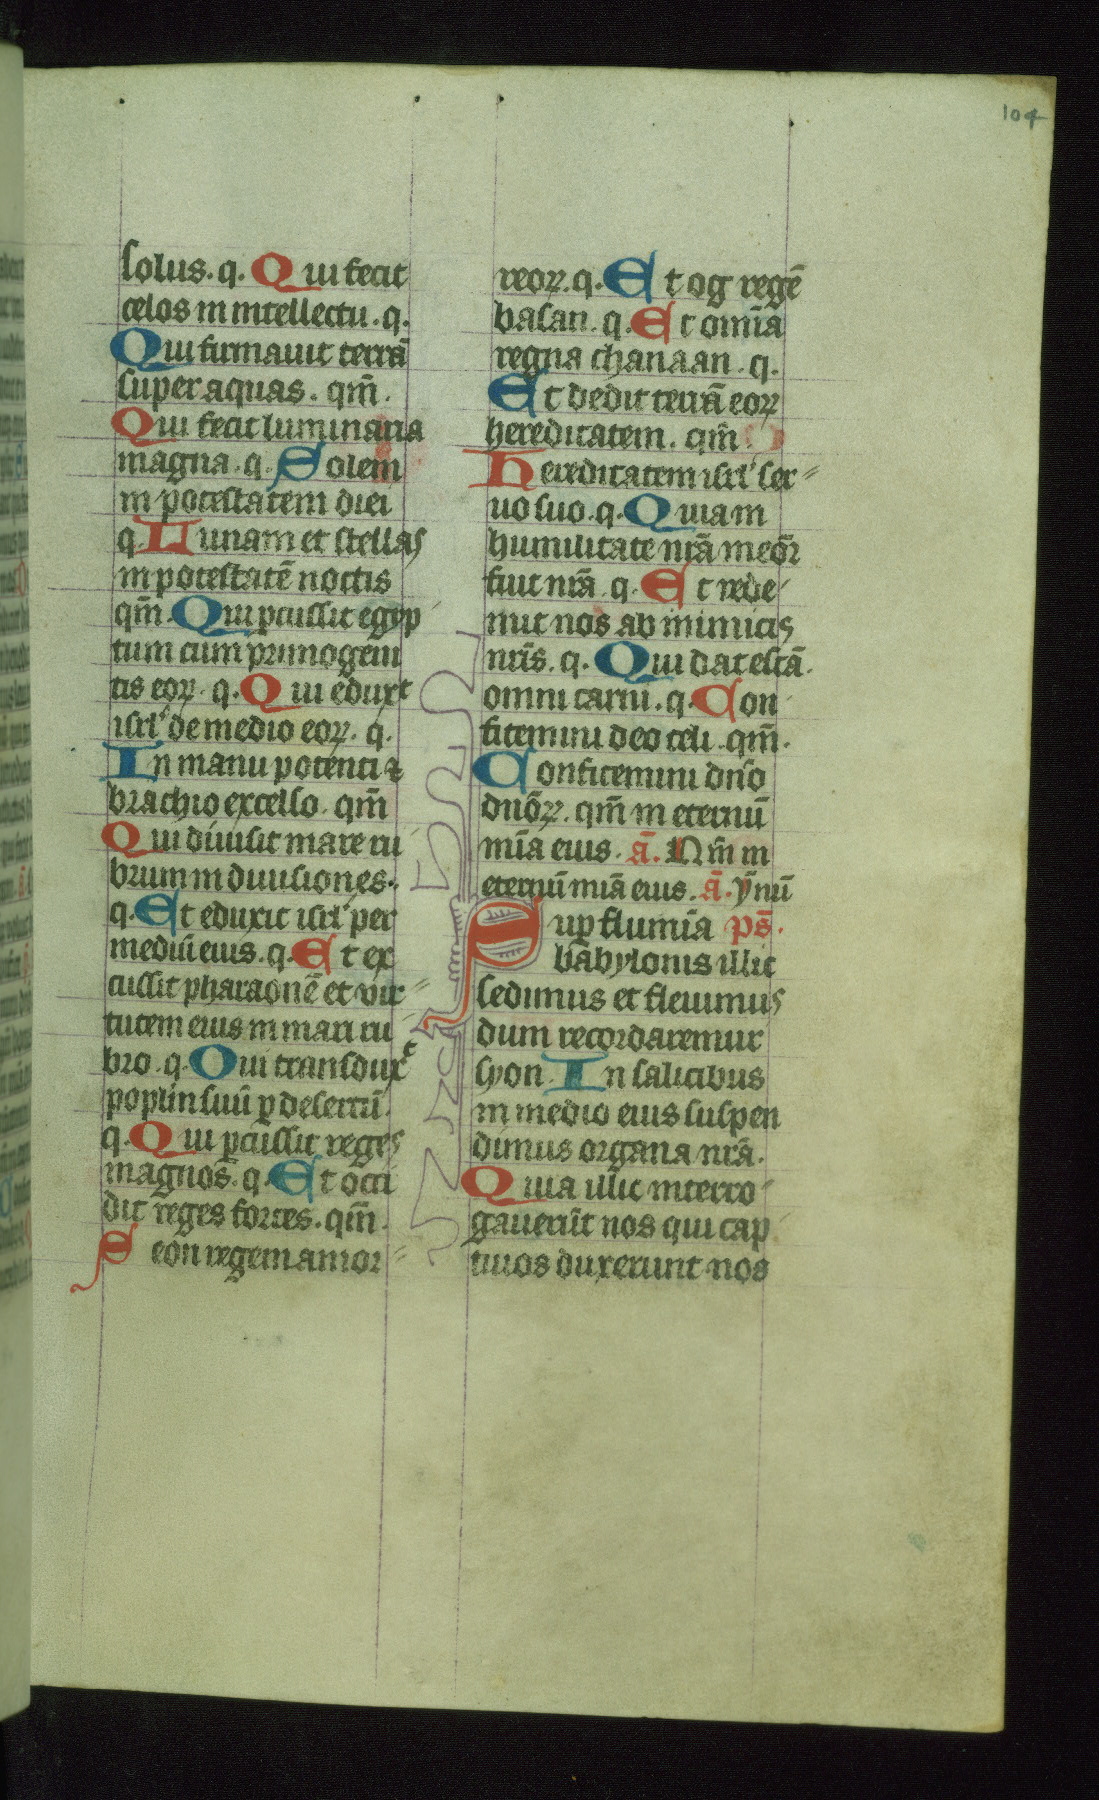 104
solus. q. Qui fecit
celos in intellectu. q.
Qui firmauit terrā
super aquas. qm̄.
Qui fecit luminaria
magna. q. Solem
in potestatem diei
q. Lunam et stellas
in potestatē noctis
qm̄. Qui pcussit egyp
tum cum primogeni
tis eoꝝ. q. Qui eduxt
isrl' de medio eoꝝ. q.
In manu potenti ⁊
brachio excelso. qm̄
Qui diuisit mare ru
brum in diuisiones.
q. Et eduxit isrl' per
mediū eius. q. Et ex
cussit pharaonē et vir
tutem eius in mari ru
bro. q. Qui transdux̄t
poplin suū ꝑ desertū.
q. Qui ꝑcussit reges
magnos. q. Et occi
dit reges fortes. qm̄.
Seon regem amor
reoꝝ. q. Et og regē
basan. q. Et omīa
regna chanaan. q.
Et dedit terrā eoꝝ
hereditatem. qm̄
Hereditatem isrl' ser
uo suo. q. Quia in
humilitate nrā meōr
fuit nrī. q. Et rede
mit nos ab inimicis
nrīs. q. Qui dat escā
omni carni. q. Con
fitemini deo celi. qm̄.
Confitemini dn̄o
dn̄oꝝ. qm̄ in eternū
mīa eius. ā. Nm̄ in
eternū mīa eius. ā. ȳnū
Suꝑ flumīa ps̄.
babylonis illic
sedimus et fleuimus
dum recordaremur
syon. In salicibus
in medio eius suspen
dimus organa nrā.
Quia illic interro
gauerūt nos qui cap
tiuos duxerunt nos